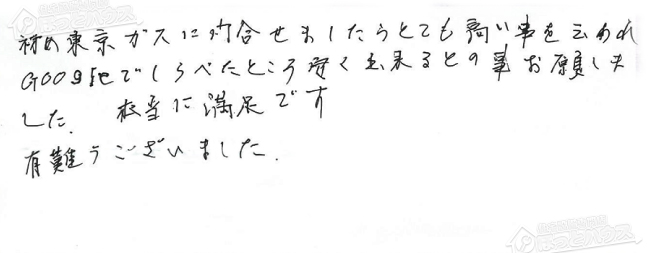 初め東京ガスに問合せましたらとても高い事を云われ
Googleでしらべたところ安く出来るとの事お願いしま
した。本当に満足です
有難うございました.